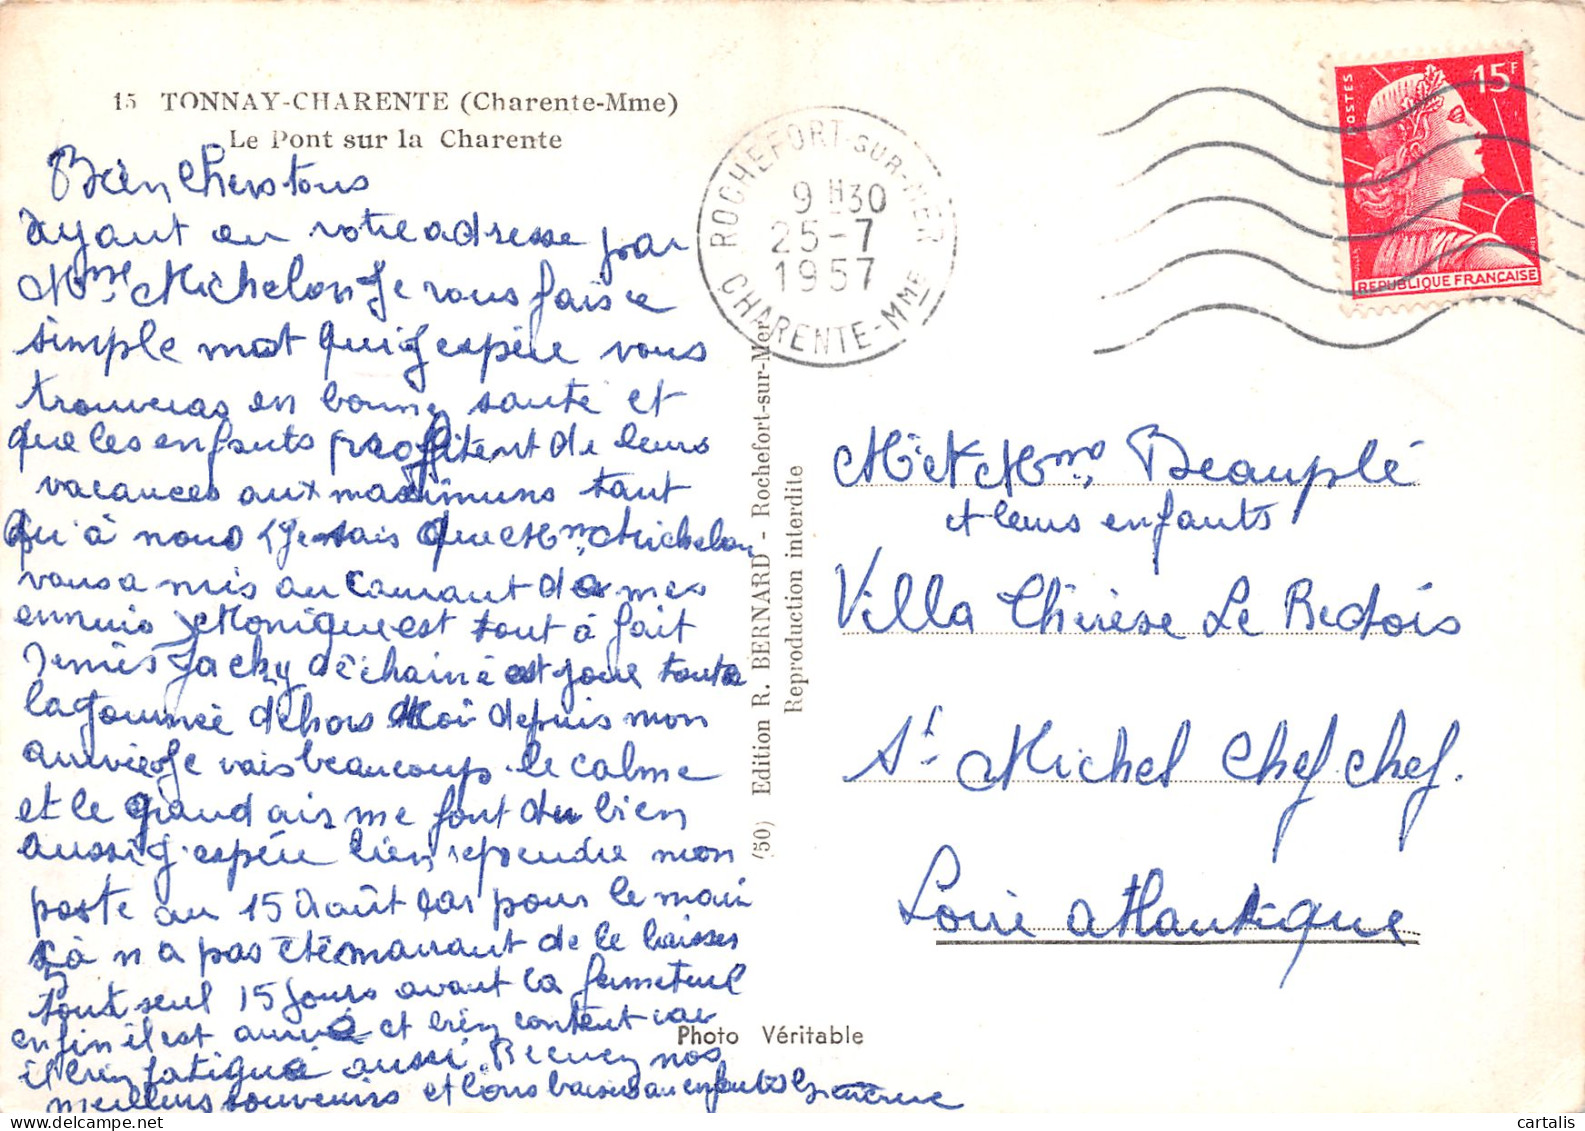 15 TONNAY-CHARENTE (Charente-Mme)
Le Pont sur la Charente
Bien Chers tous
Ayant eu votre adresse par
Mme Michelon Je vous fais ce
simple mot qui j espère vous
trouveras en bonne santé et
que les enfants profitent de leurs
vacances aux maximuns tant
qu'à nous Je sais que Mme Michelon
vous a mis au courant de mes
ennuis Monique est tout à fait
remis Jacky déchainé est joue toute
la journée dehors Moi depuis mon
arrivée Je vais beaucoup le calme
et le grand air me font du bien
aussi j espére bien reprendre mon
poste au 15 Août car pour le mari
sa n a pas été marrant de le laisser
tout seul 15 jours avant la fermeture
enfin il est arrivé et bien content car
il bien fatigué aussi. Recevez nos
meilleurs souvenirs et bons baisers au enfants
ROCHEFORT-SUR-MER
9 H30
25-7
1957
CHARENTE-MME
POSTES
15F
REPUBLIQUE FRANÇAISE
(50) Edition R. BERNARD - Rochefort-sur-Mer
Reproduction interdite
Mr et Mme Beauplé
et leurs enfants
Villa Thérèse Le Redois
St Michel Chef chef.
Loire Atlantique
Photo Véritable
cartalis